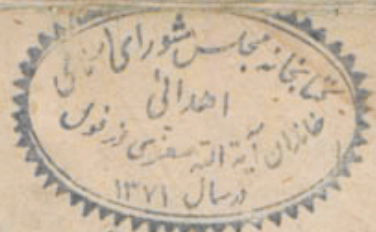 کتابخانه مجلس شورای اسلامی
اهدائی
خاندان آیة الله معزی دزفولی
درسال ۱۳۷۱